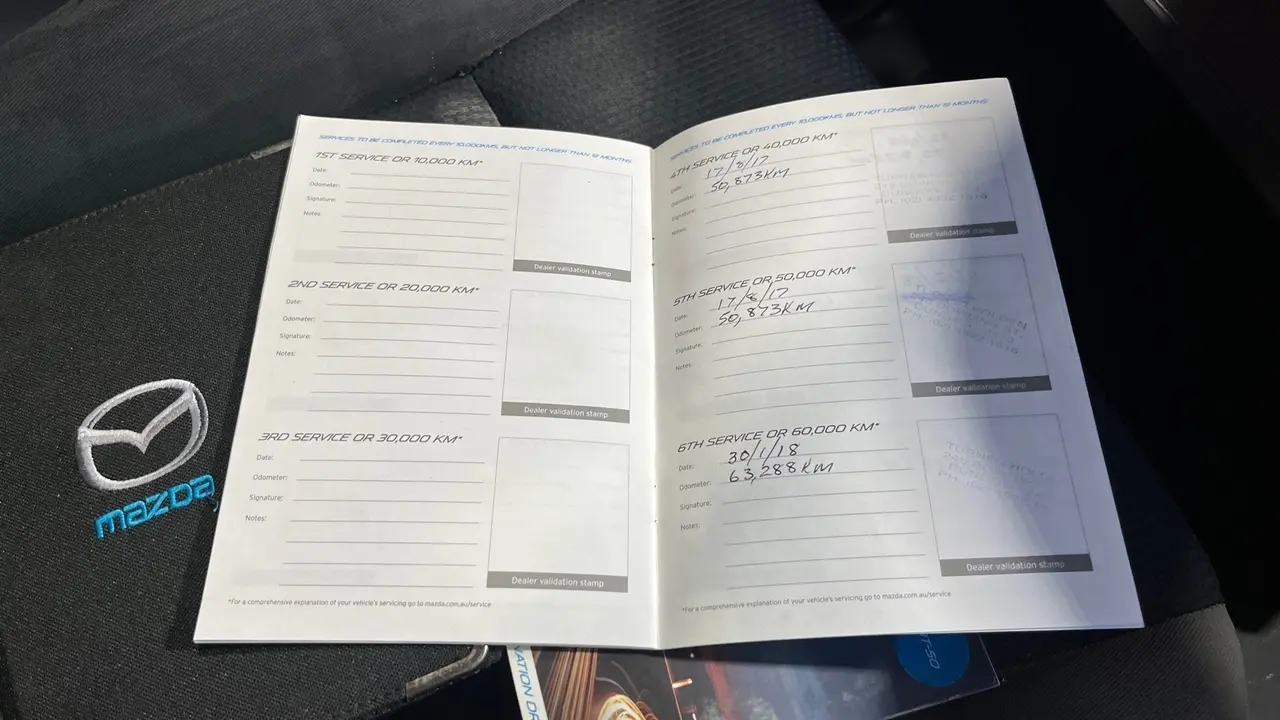 SERVICES TO BE COMPLETED EVERY 10,000KMS, BUT NOT LONGER THAN 12 MONTHS
1ST SERVICE OR 10,000 KM*
Date:
Odometer:
Signature:
Notes:
Dealer validation stamp
2ND SERVICE OR 20,000 KM*
Date:
Odometer:
Signature:
Notes:
Dealer validation stamp
3RD SERVICE OR 30,000 KM*
Date:
Odometer:
Signature:
Notes:
Dealer validation stamp
*For a comprehensive explanation of your vehicle's servicing go to mazda.com.au/service
SERVICES TO BE COMPLETED EVERY 10,000KMS, BUT NOT LONGER THAN 12 MONTHS
4TH SERVICE OR 40,000 KM*
Date: 17/8/17
Odometer: 50,873KM
Signature:
Notes:
Dealer validation stamp
5TH SERVICE OR 50,000 KM*
Date: 17/8/17
Odometer: 50,873KM
Signature:
Notes:
Dealer validation stamp
6TH SERVICE OR 60,000 KM*
Date: 30/1/18
Odometer: 63,288KM
Signature:
Notes:
Dealer validation stamp
*For a comprehensive explanation of your vehicle's servicing go to mazda.com.au/service
mazda